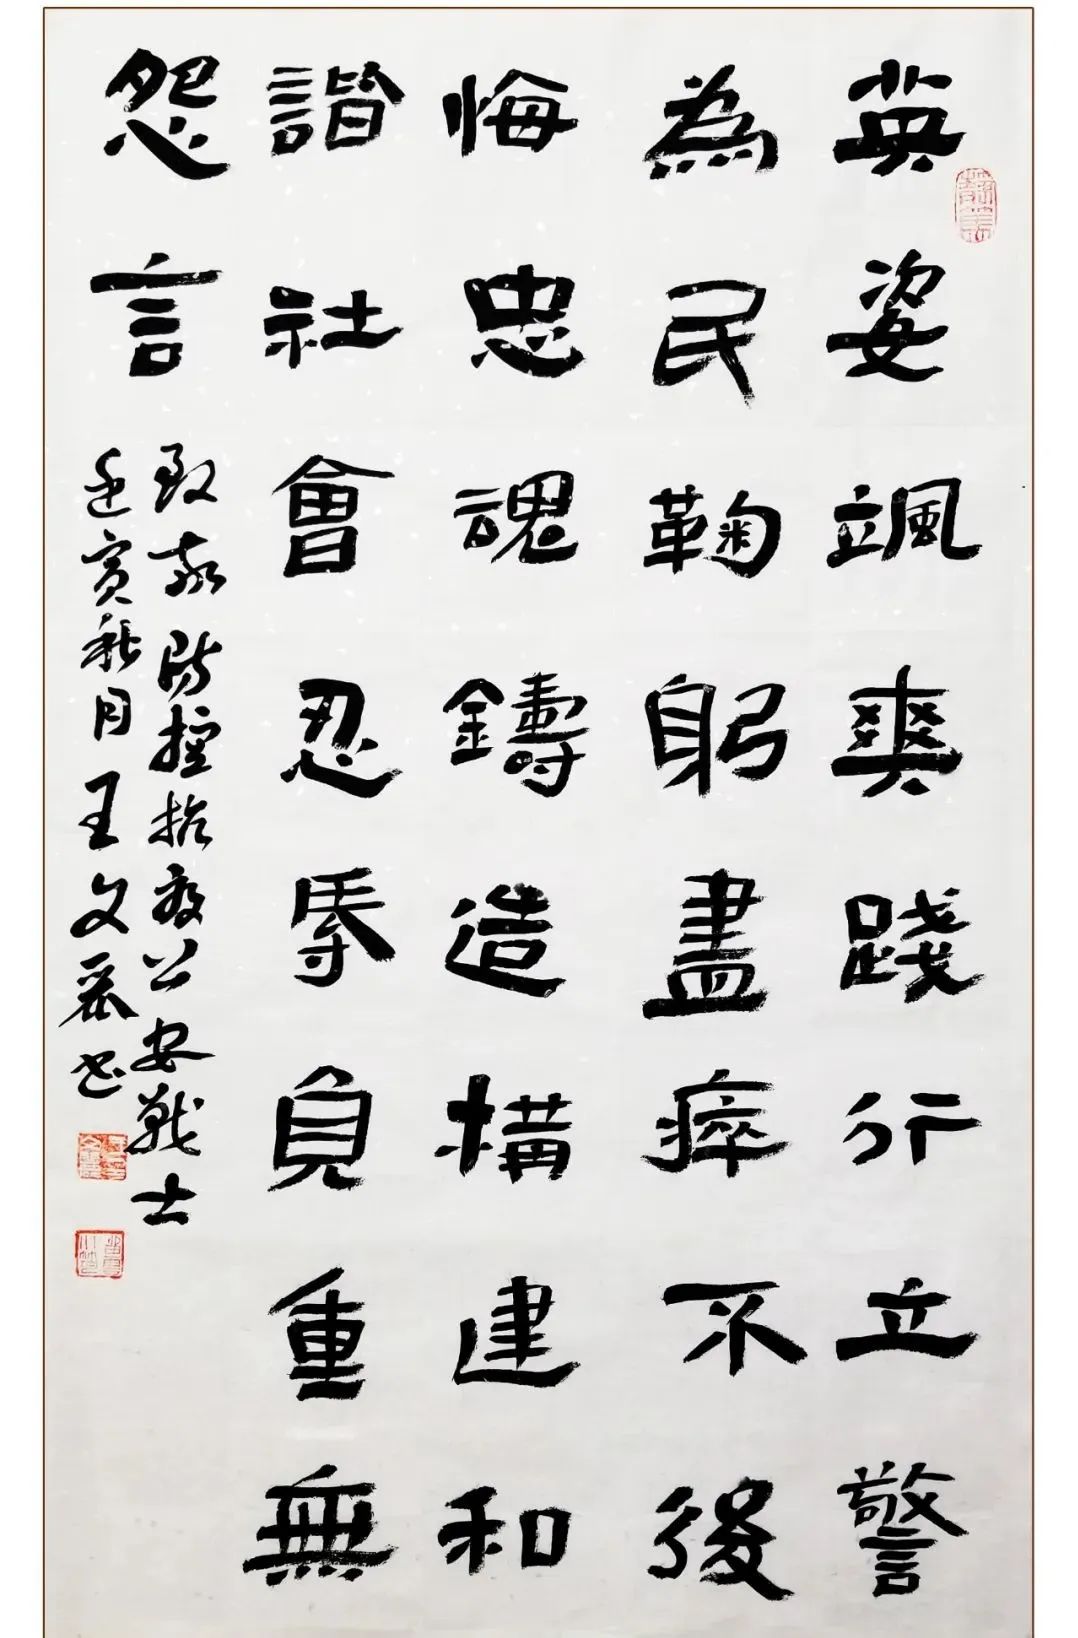 英姿颯爽踐行立警
為民鞠躬盡瘁不後
悔忠魂鑄造構建和
諧社會忍辱負重無
怨言
致敬防控抗疫公安戰士
壬寅秋月王文书